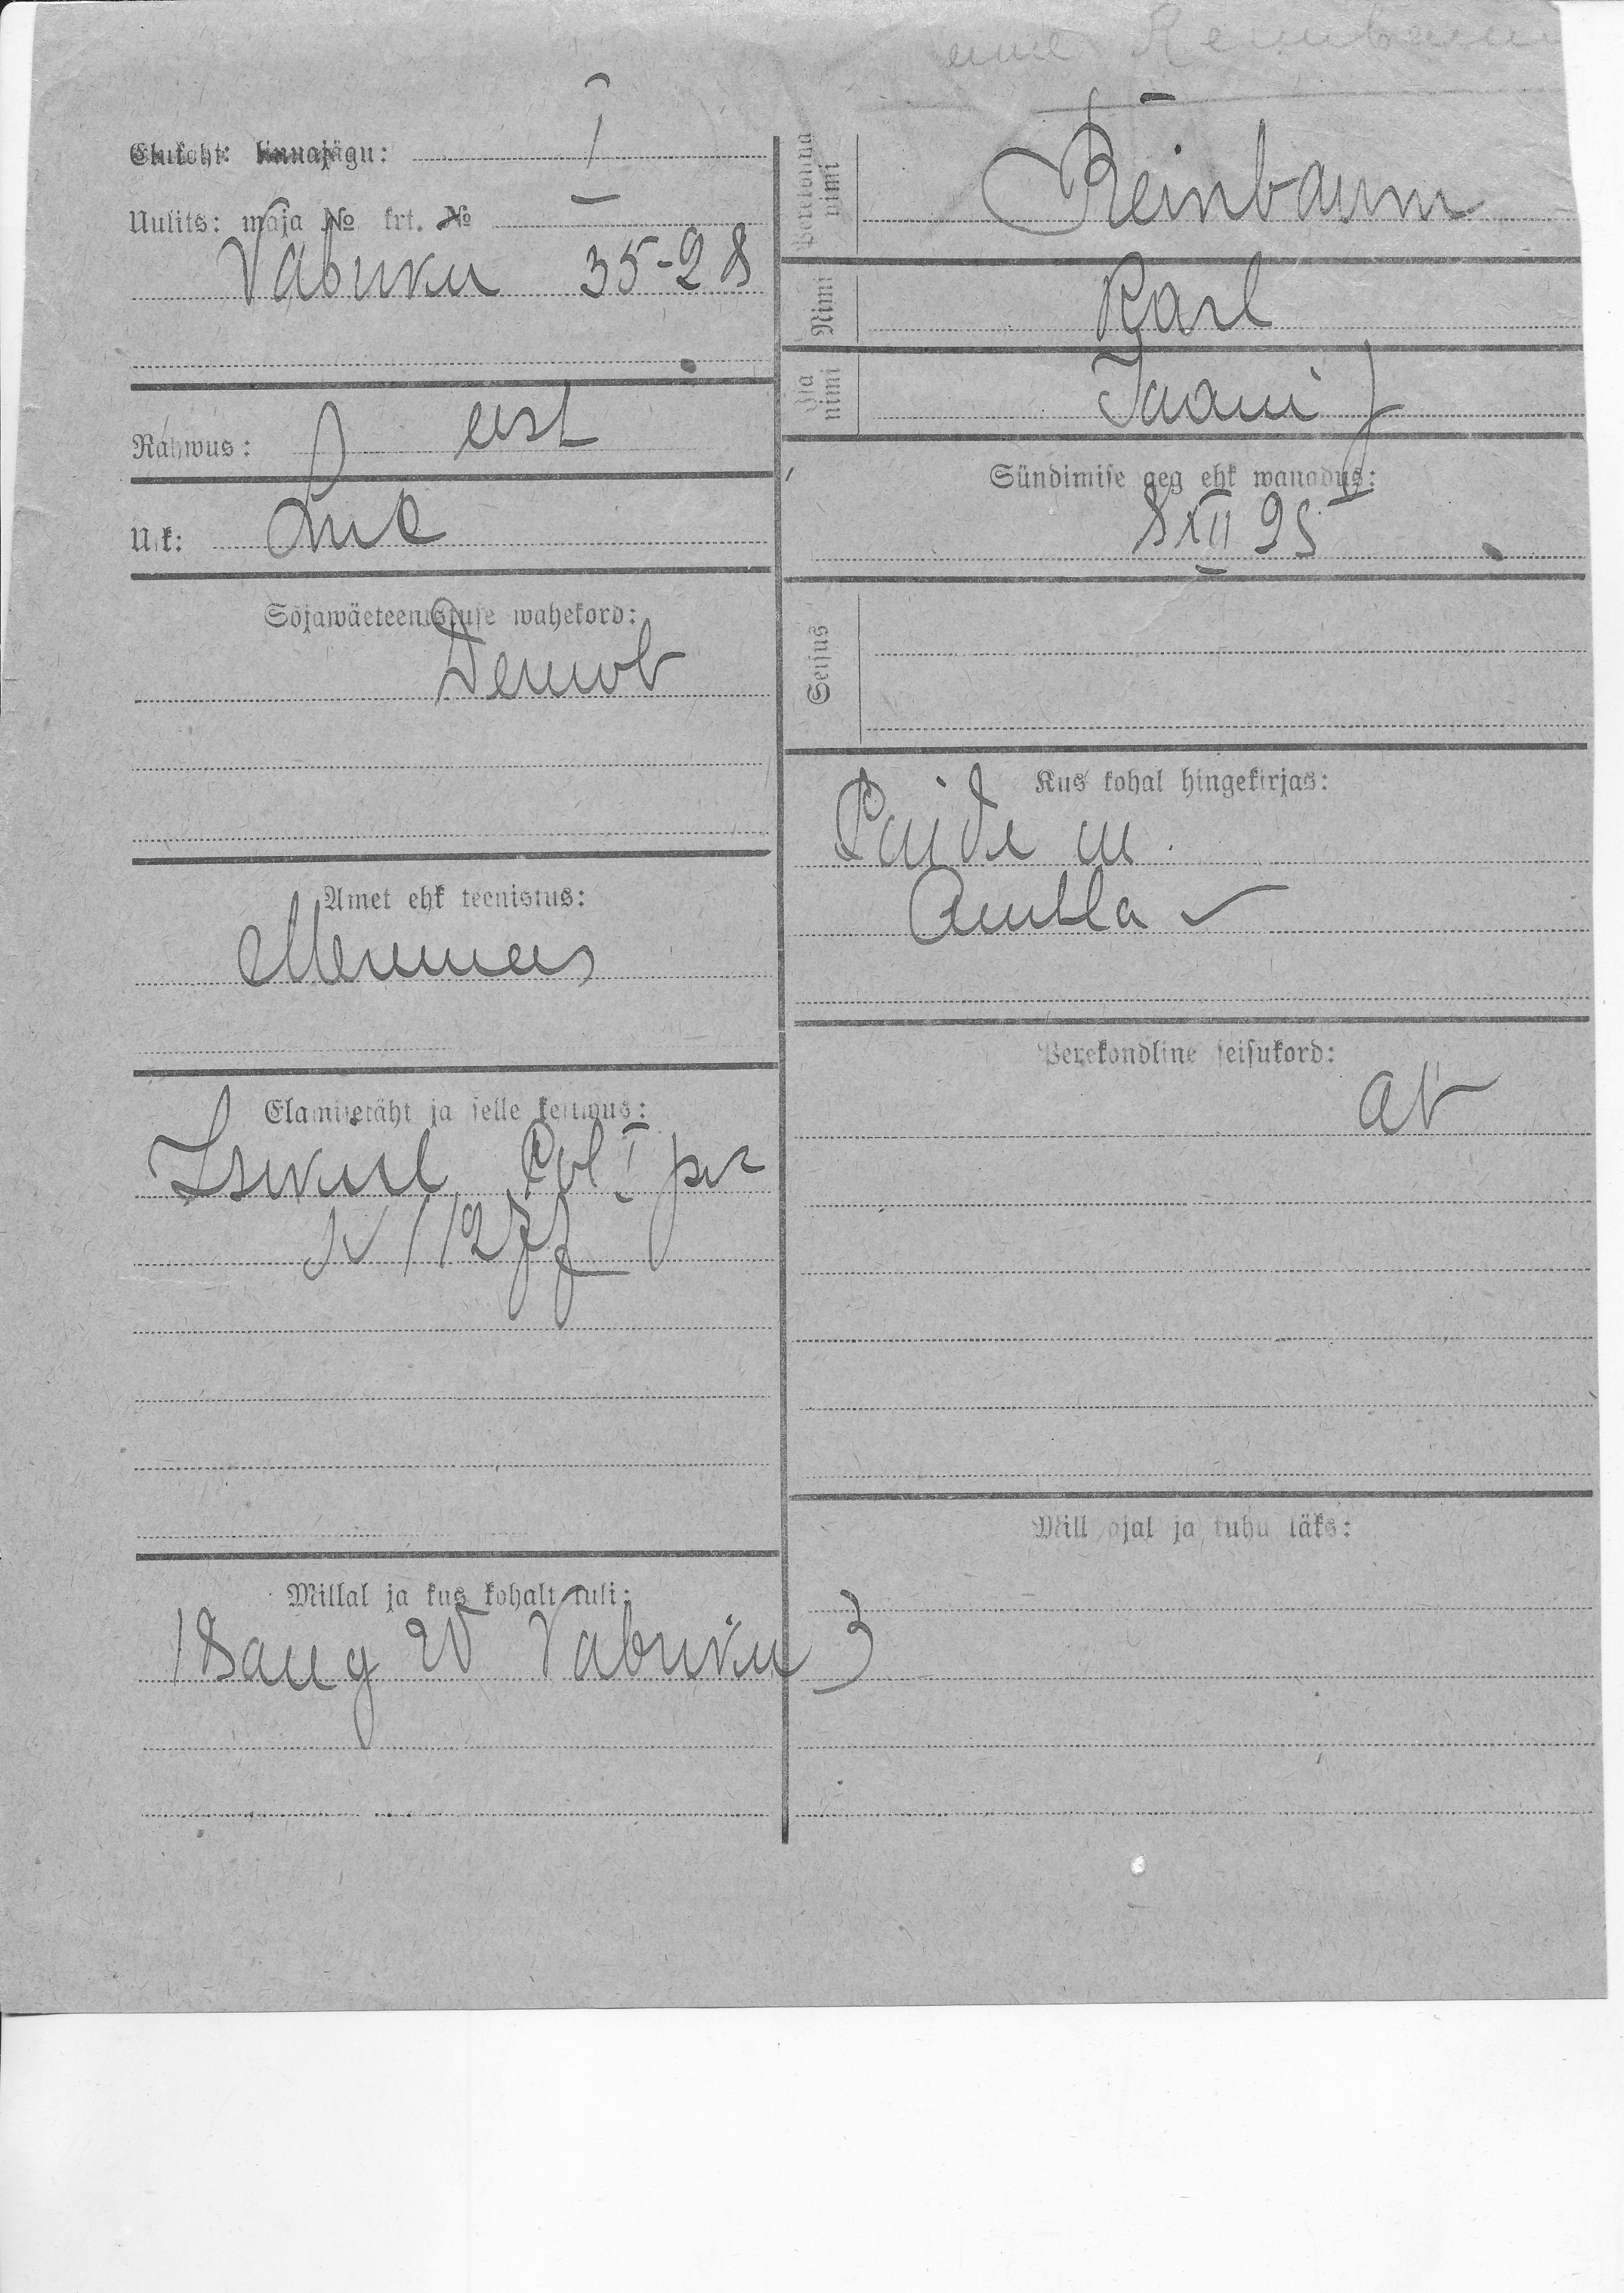 Reinbaum
Elukoht: linnajägu: I
Uulits: maja № krt. №
Vabriku 35-28
Rahwus: eest
Usk: Lut
Sõjawäeteenistuse wahekord:
Demob
Amet ehk teenistus:
Meremees
Elamisetäht ja selle kestwus:
Isikut. Pol I
№ 11277
Millal ja kus kohalt tuli:
18 aug 20 Vabriku 3
Perekonna nimi
Reinbaum
Nimi
Karl
Isa nimi
Jaani p
Sündimise aeg ehk wanadus:
8 XII 95
Seisus
Kus kohal hingekirjas:
Paide m.
Ambla
Perekondline seisukord:
ab
Mill ajal ja kuhu läks: